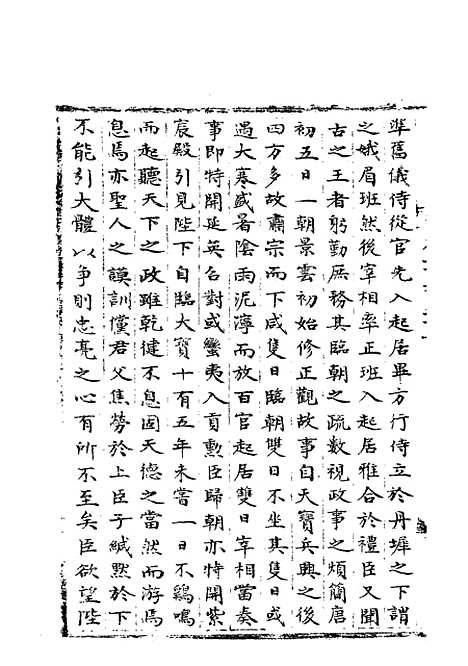 準舊儀侍從官先入起居畢方行侍立於丹墀之下謂
之娥眉班然後宰相率正班入起居雅合於禮臣又聞
古之王者躬勤庶務其臨朝之疏數視政事之煩簡唐
初五日一朝景雲初始修正觀故事自天寶兵興之後
四方多故肅宗而下咸隻日臨朝雙日不坐其隻日或
遇大寒盛暑陰雨泥濘而放百官起居雙日宰相當奏
事即特開延英召對或蠻夷入貢勲臣歸朝亦特開紫
宸殿引見陛下自臨大寶十有五年未嘗一日不鷄鳴
而起聽天下之政雖乾健不息固天德之當然而游焉
息焉亦聖人之謨訓僅君父焦勞於上臣子緘默於下
不能引大體以爭則忠亮之心有所不至矣臣欲望陛